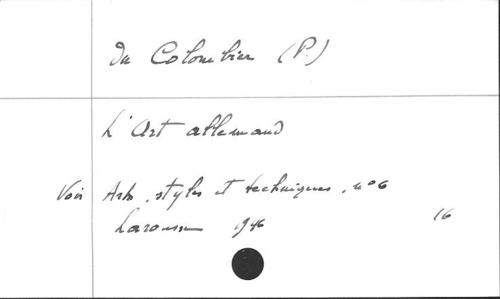 Du Colombier (P.)
L'Art allemand
Voir Arts, styles et techniques, n° 6
Larousse 1946 16